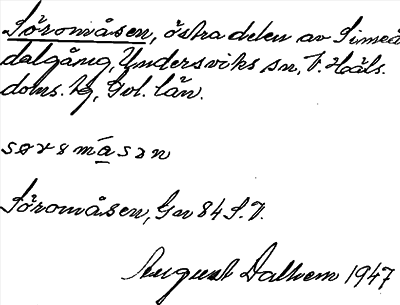 Söromåsen, östra delen av Simeå
dalgång, Undersviks sn, V. Häls.
doms. tg, Gvl. län.
Söromåsen, Gn 84 S.V.
August Dalhem 1947